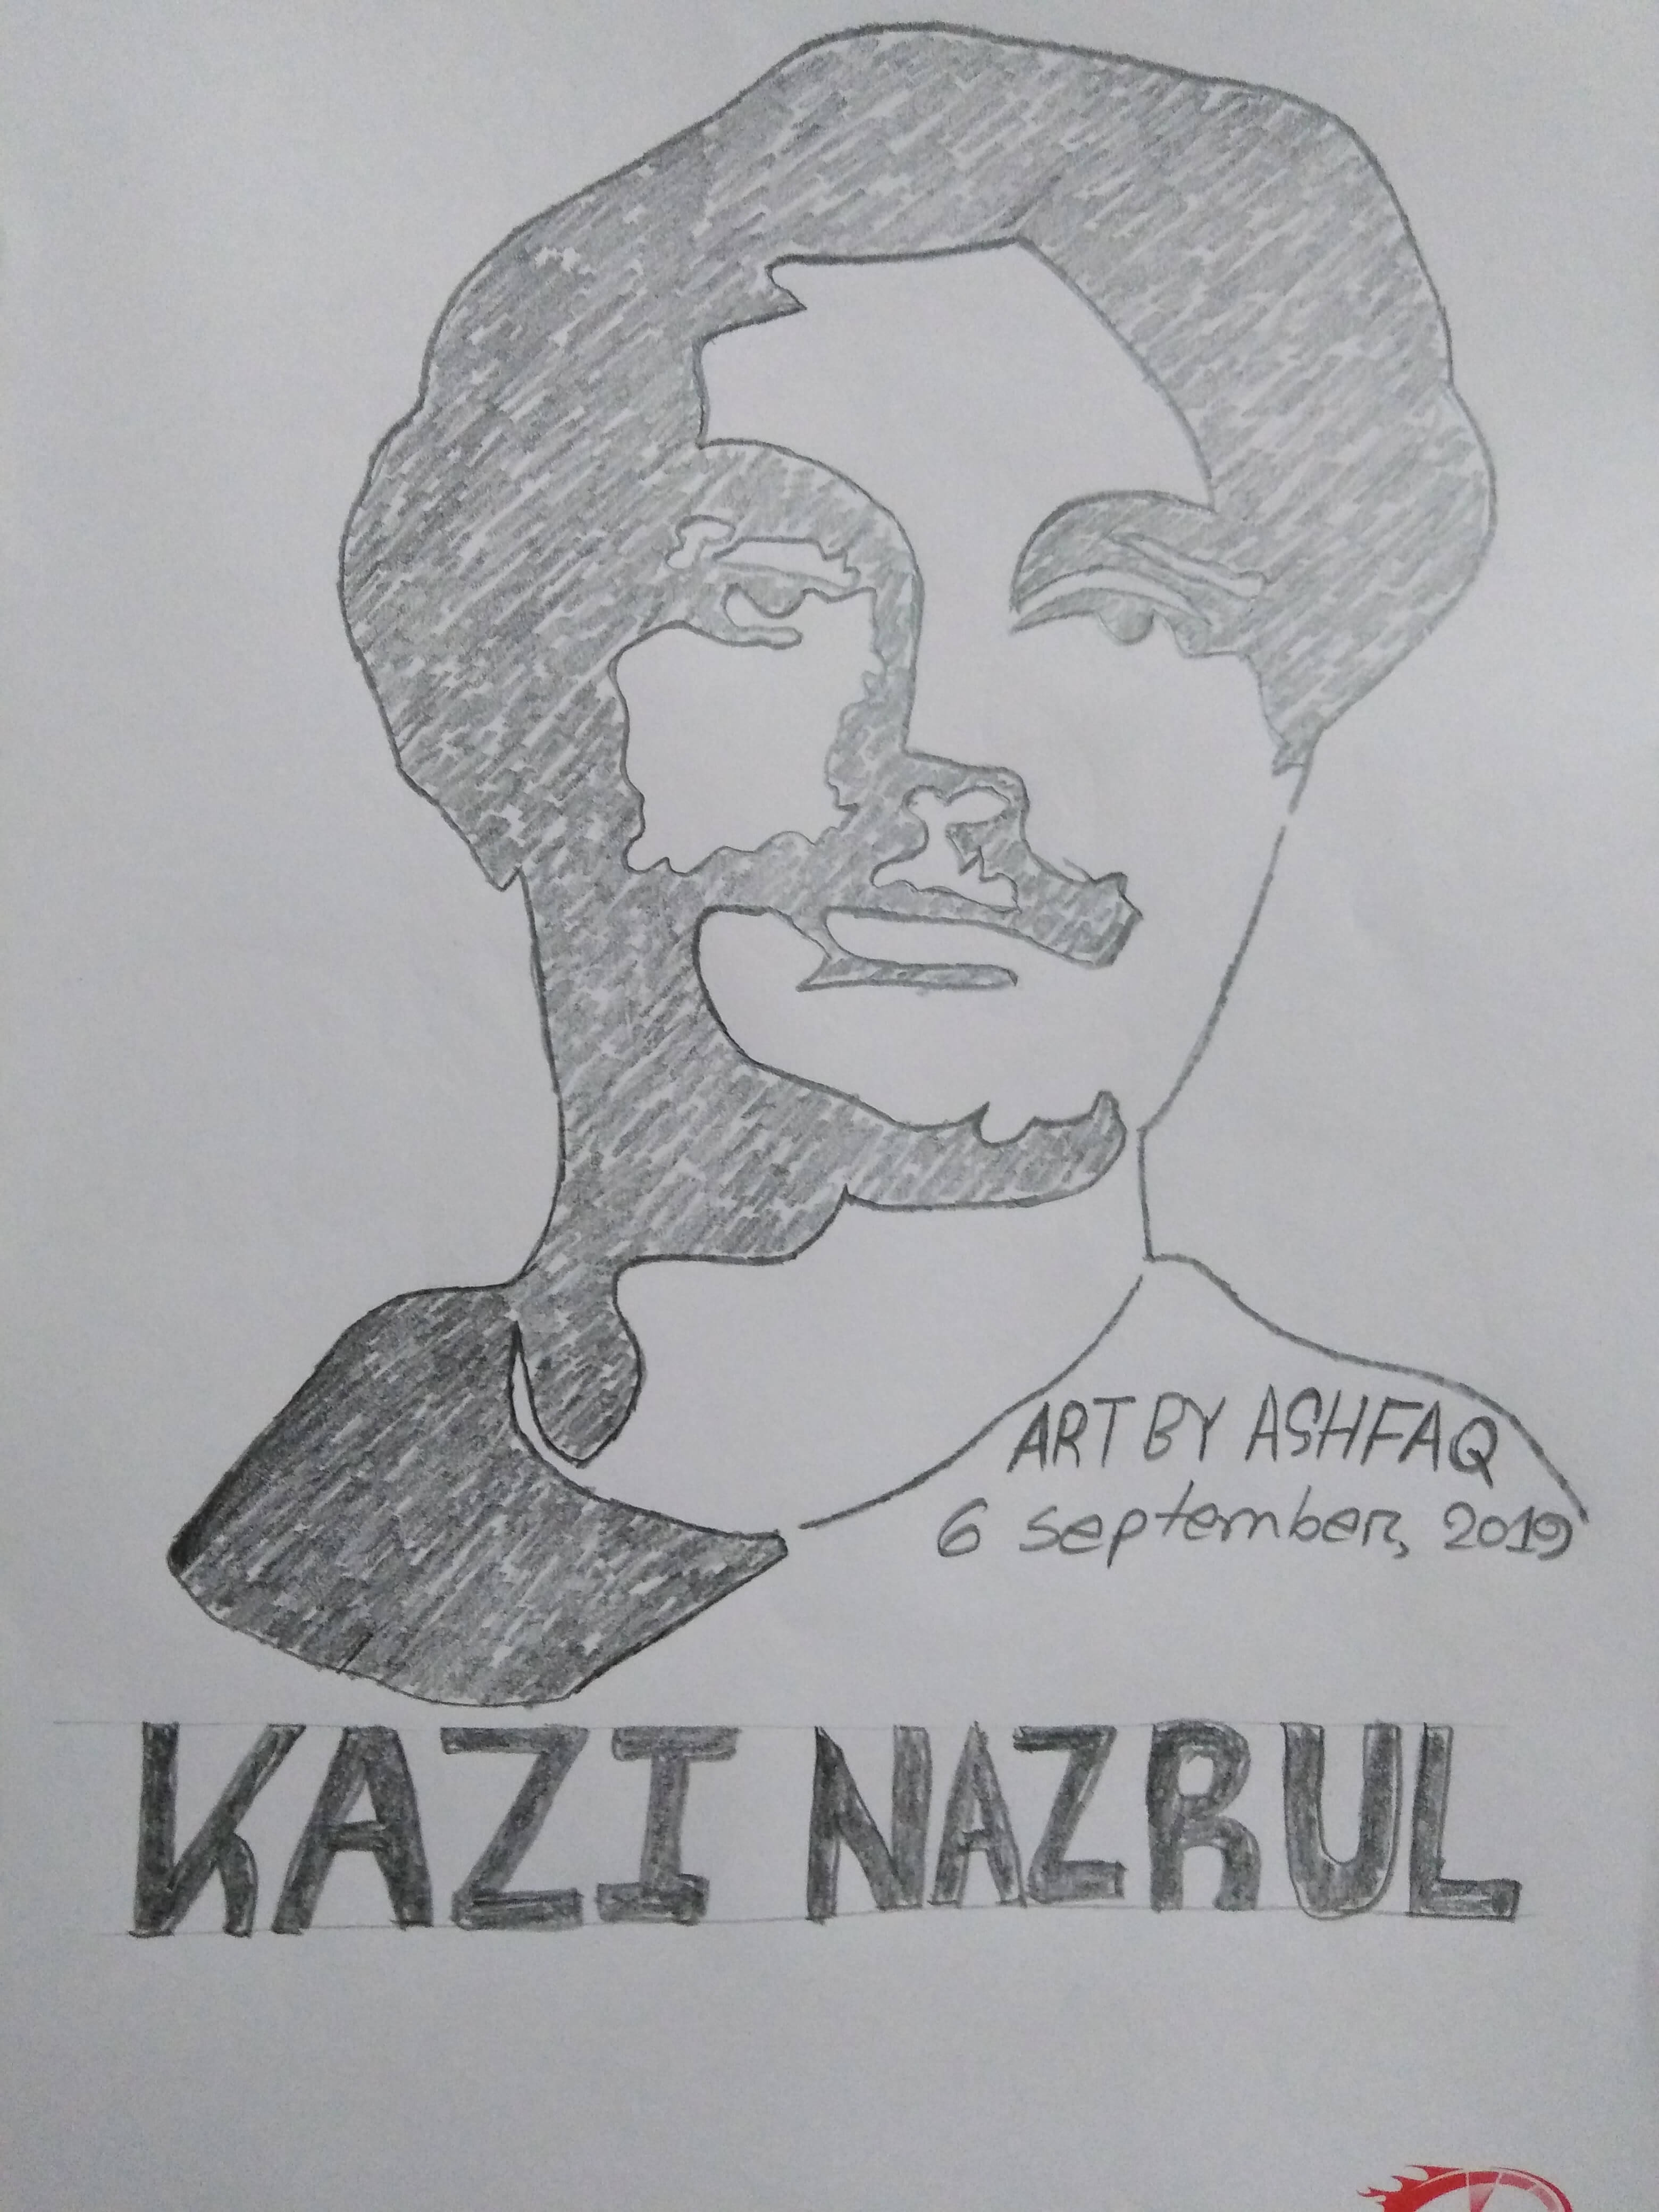 ART BY ASHFAQ
6 September, 2019
KAZI NAZRUL